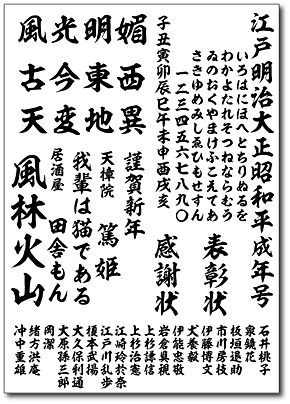 江戸明治大正昭和平成年号
いろはにほへとちりぬるを
わかよたれそつねならむう
ゐのおくやまけふこえてあ
さきゆめみしゑひもせすん
一二三四五六七八九〇
子丑寅卯辰巳午未申酉戌亥
媚西異
明東地
光今変
風古天
表彰状
感謝状
謹賀新年
天樟院
篤姫
我輩は猫である
居酒屋
田舎もん
風林火山
石井桃子
泉鏡花
板垣退助
市川房枝
伊藤博文
犬養毅
伊能忠敬
岩倉具視
上杉謙信
上杉治憲
江崎玲於奈
江戸川乱歩
榎本武揚
大久保利通
大原孫三郎
岡潔
緒方洪庵
沖中重雄